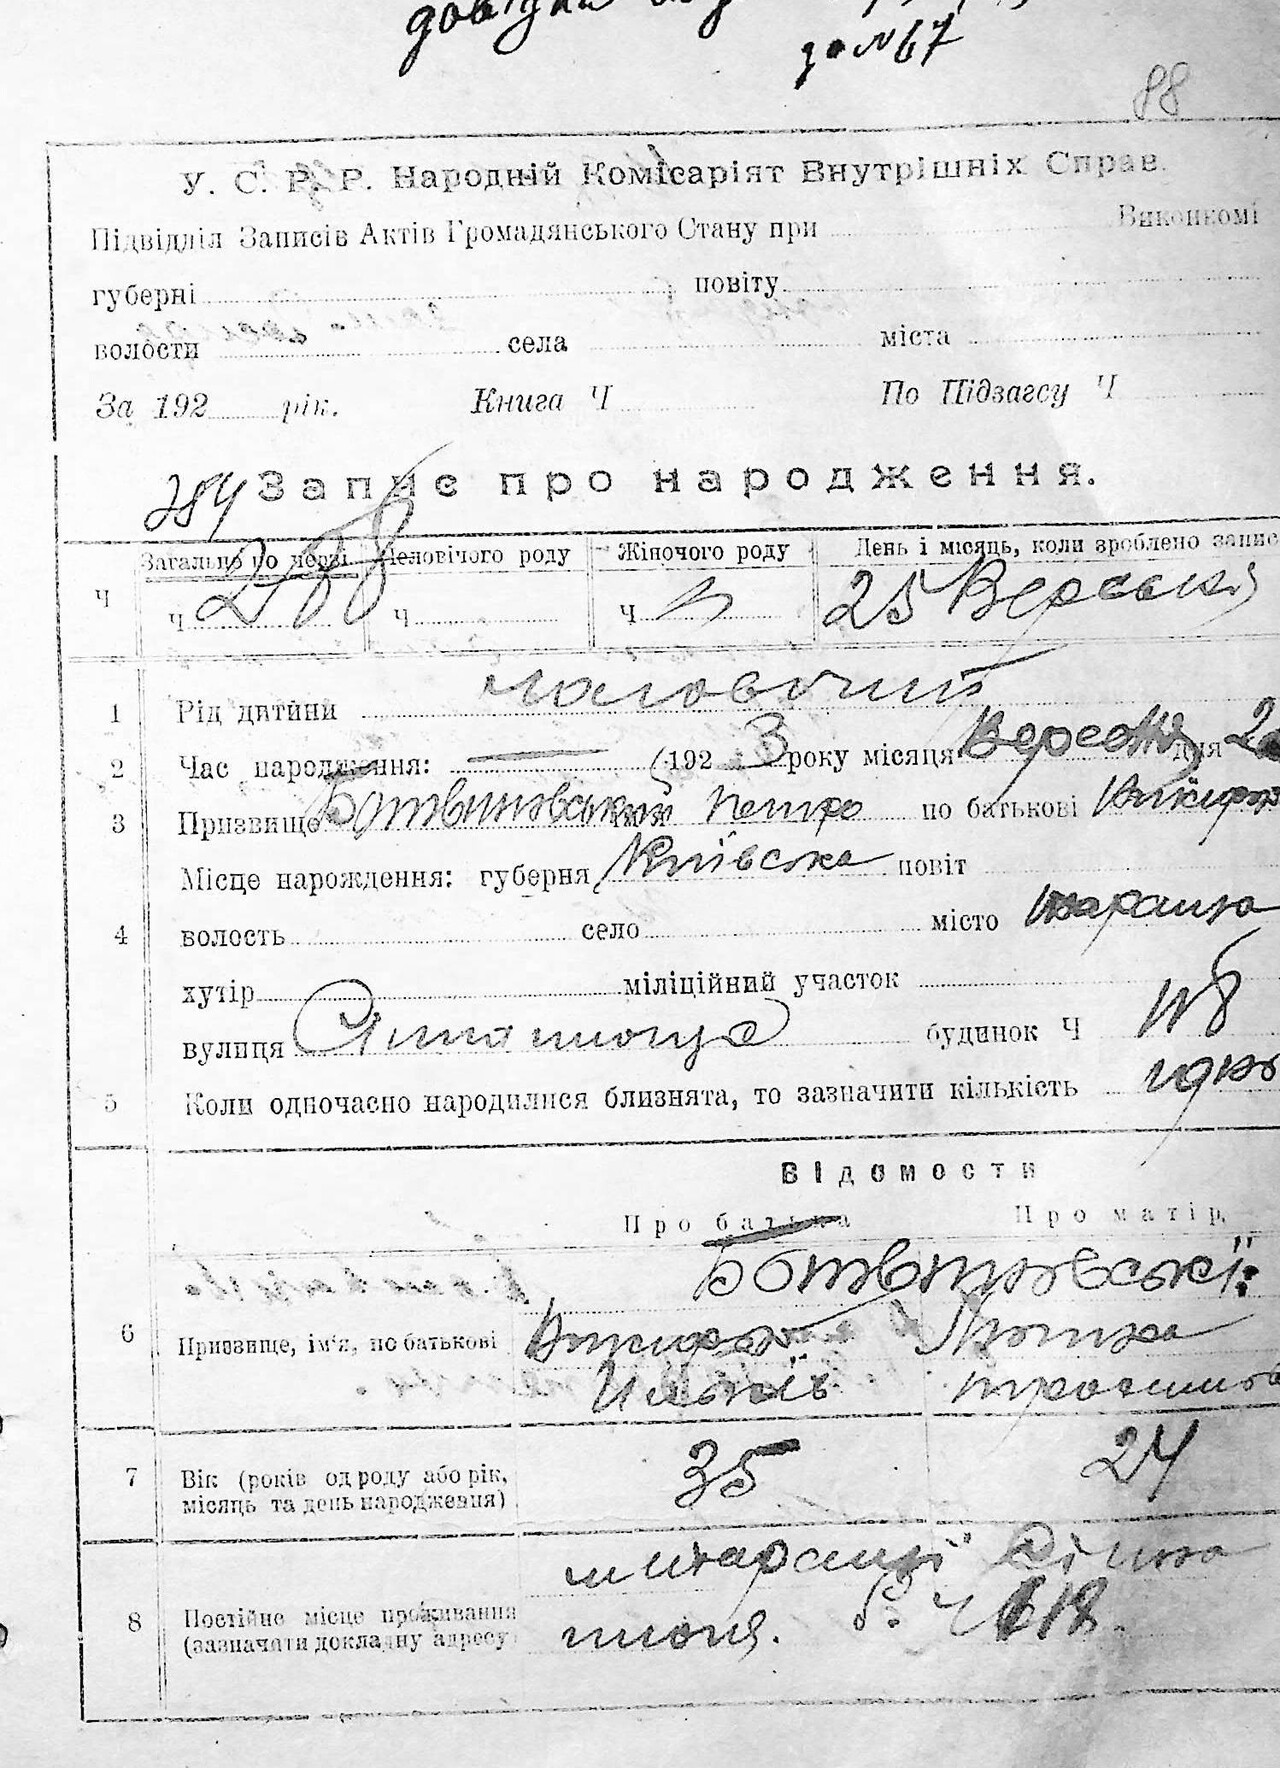 до №67
88
У. С. Р. Р. Народній Комісаріят Внутрішніх Справ.
Підвідділ Записів Актів Громадянського Стану при Виконкомі
губерні повіту
волости села міста
За 192 рік. Книга Ч По Підзагсу Ч
284 Запис про народження.
Загально по черзі Человічого роду Жіночого роду День і місяць, коли зроблено запис
Ч Ч Ч Ч 25 Вересня
1 Рід дитини чоловічий
2 Час народження: 192 3 року місяця Вересня дня
3 Призвище Ботвиновський імя Петро по батькові Никифор
Місце народження: губерня Київська повіт
4 волость село місто Тараща
хутір міліційний участок
вулиця будинок Ч
5 Коли одночасно народилися близнята, то зазначити кількість одно
Відомости
Про батька Про матір
Ботвиновські:
6 Призвище, ім'я, по батькові Никифор Мотря
Ільків Трохимов
7 Вік (років од роду або рік, 35 24
місяць та день народження)
м Тараща
8 Постійне місце проживання
(зазначати докладну адресу) б. Ч 118.